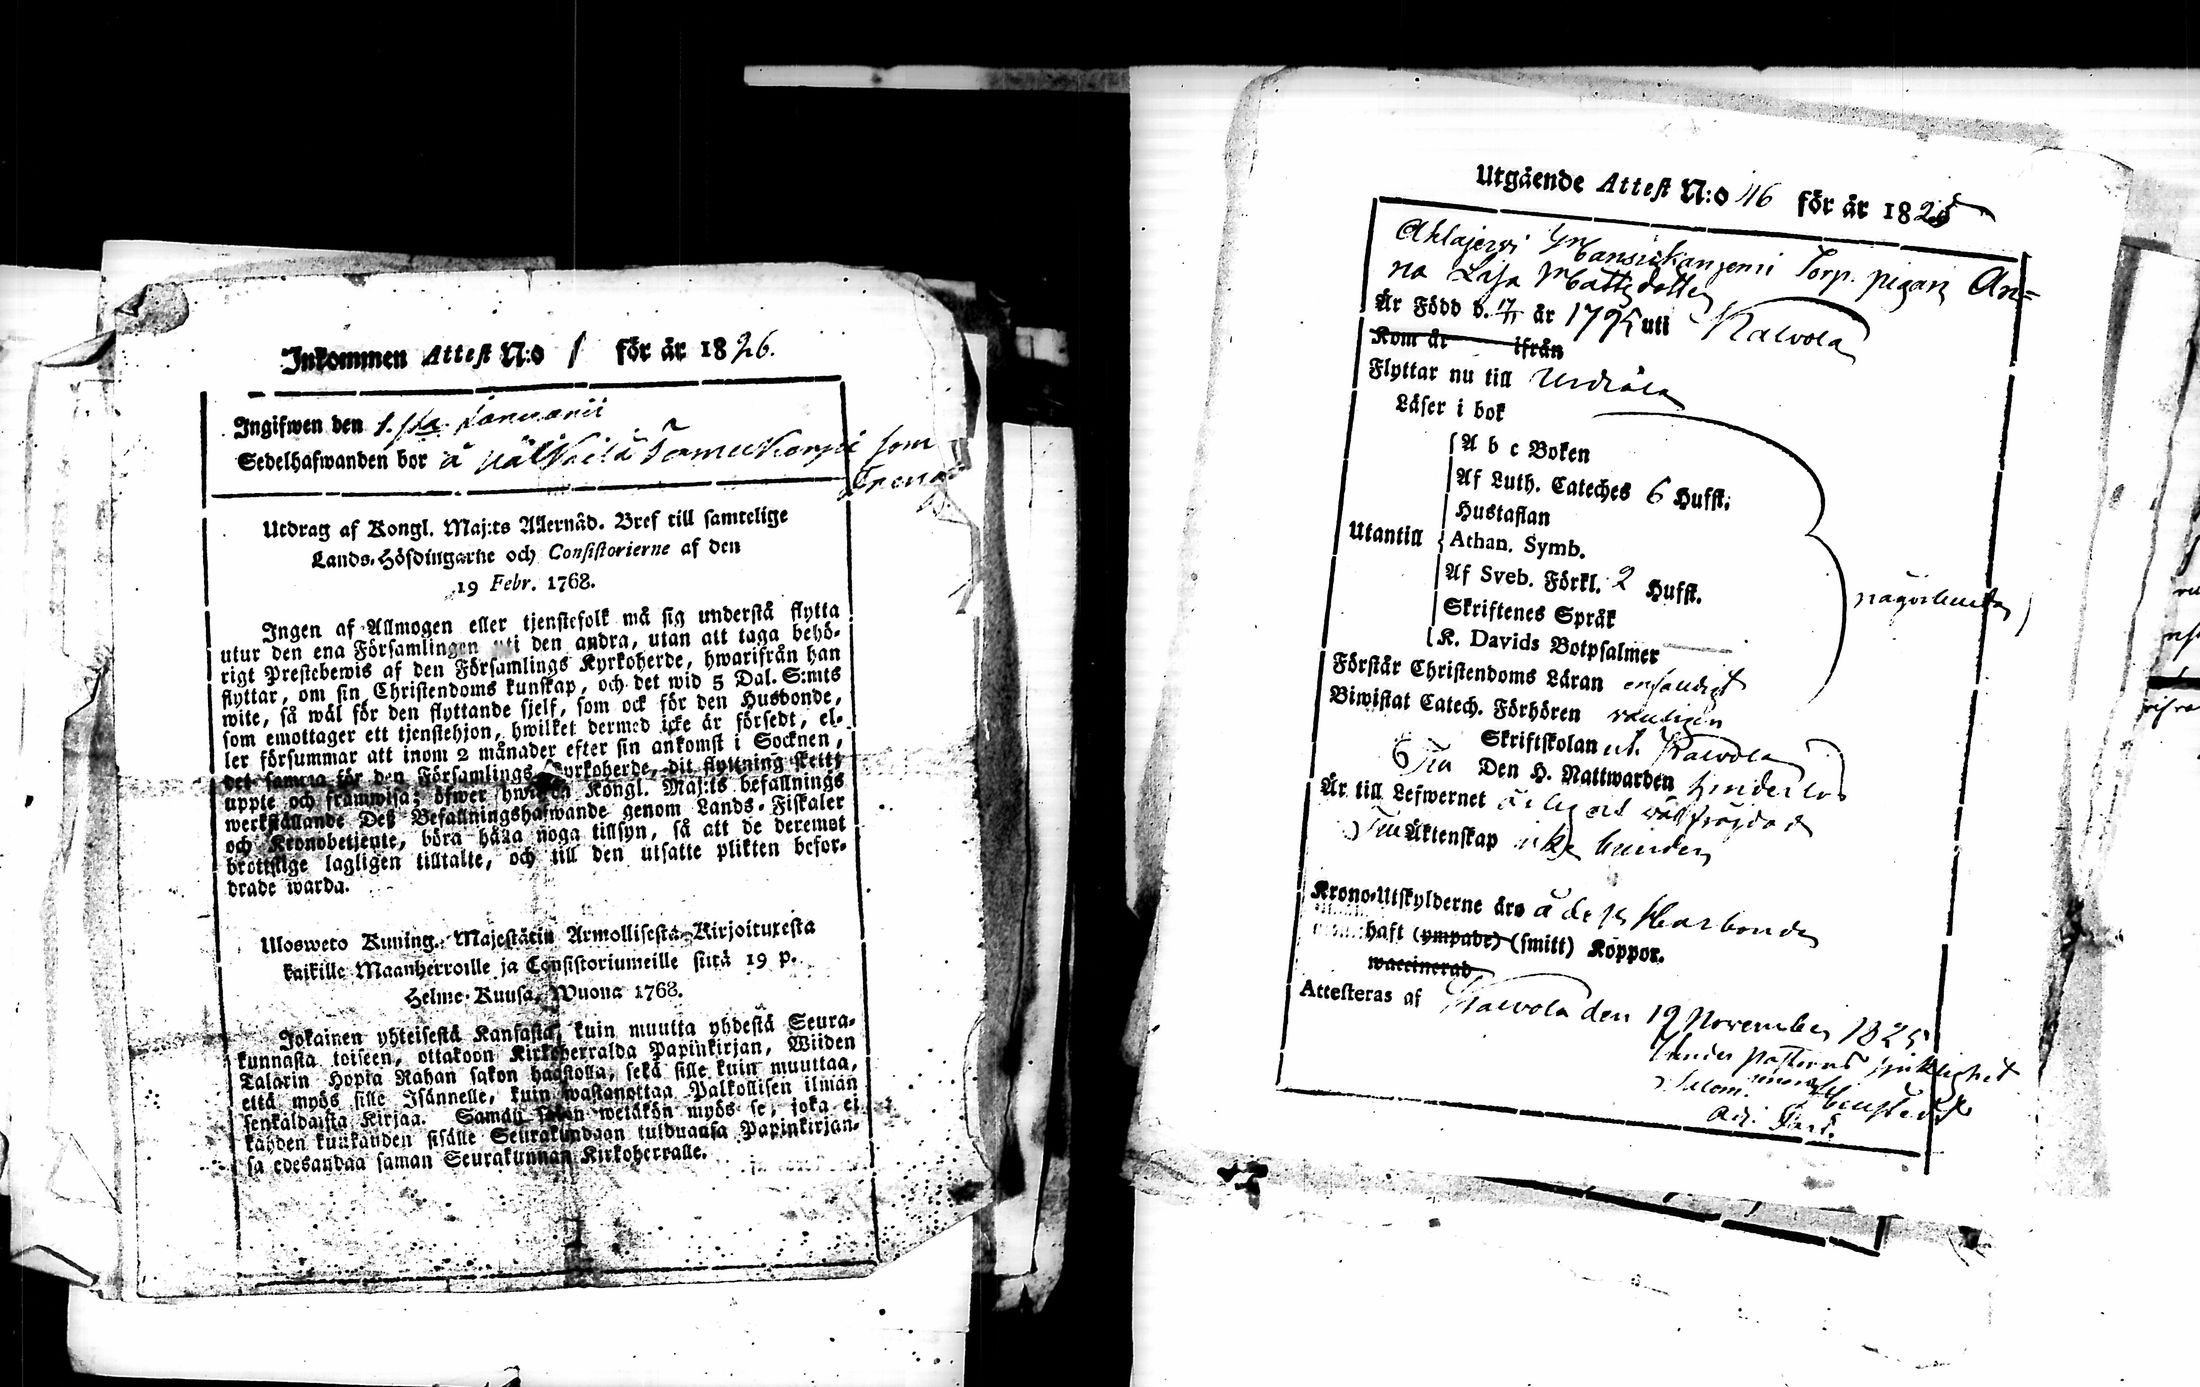 Inkommen Attest N:o 1 för år 1826.
Ingifwen den 1:sta Januarii
Sedelhafwanden bor å som
Utdrag af Kongl. Maj:ts Allernåd. Bref till samtelige
Lands-Höfdingarne och Consistorierne af den
19 Febr. 1768.
Ingen af Allmogen eller tjenstefolk må sig understå flytta
utur den ena Församlingen uti den andra, utan att taga behö-
rigt Prestebewis af den Församlings Kyrkoherde, hwarifrån han
flyttar, om sin Christendoms kunskap, och det wid 5 Dal. S:mts
wite, så wäl för den flyttande sjelf, som ock för den Husbonde,
som emottager ett tjenstehjon, hwilket dermed icke är försedt, el-
ler försummar att inom 2 månader efter sin ankomst i Socknen,
det samma för den Församlings Kyrkoherde, dit flyttning skett,
uppte och framwisa; öfwer hwilka Kongl. Maj:ts befallnings
werkställande Deß Befallningshafwande genom Lands-Fiskaler
och Kronobetjente, böra hålla noga tillsyn, så att de deremot
brottslige lagligen tilltalte, och till den utsatte plikten befor-
drade warda.
Ulosweto Kuning. Majestätin Armollisesta Kirjoituxesta
kaikille Maanherroille ja Consistoriumeille siitä 19 p.
Helme-Kuusa, Wuona 1768.
Jokainen yhteisestä Kansasta, kuin muutta yhdestä Seura-
kunnasta toiseen, ottakoon Kirkoherralda Papinkirjan, Wiiden
Talarin Hopia Rahan sakon haastolla, sekä sille kuin muuttaa,
että myös sille Isännelle, kuin wastanottaa Palkollisen ilman
senkaldaista Kirjaa. Samän sakon wetäkön myös se, joka ei
kahden kuukauden sisälle Seurakundaan tulduansa Papinkirjan-
sa edesandaa saman Seurakunnan Kirkoherralle.
Utgående Attest N:o 46 för år 1825
Ahlajervi Mansickanjemi Torp. pigan An-
na Lisa Mattsdotter
Är Född d. 17/11 år 1795 uti Kalvola
Kom år ifrån
Flyttar nu till Urdiala
Läser i bok
A b c Boken
Af Luth. Cateches 6 Hufst.
Hustaflan
Utantill Athan. Symb.
Af Sveb. Förkl. 2 Hufst.
Skriftenes Språk
K. Davids Botpsalmer
någorlunda
Förstår Christendoms Läran enfaldigt
Biwistat Catech. Förhören vanligen
Skriftskolan ut. Kalvola
Fri Den H. Nattwarden hinderlös
Är till Lefwernet ärlig och wälfrägdad
Till Äktenskap icke bunden
Krono-Utskylderne äro å dess Husbonde
haft (ympade) (smitt) Koppor.
waccinerad
Attesteras af Kalvola den 19 November 1825
Under Pastoris sjuklighet
Adj. Past.